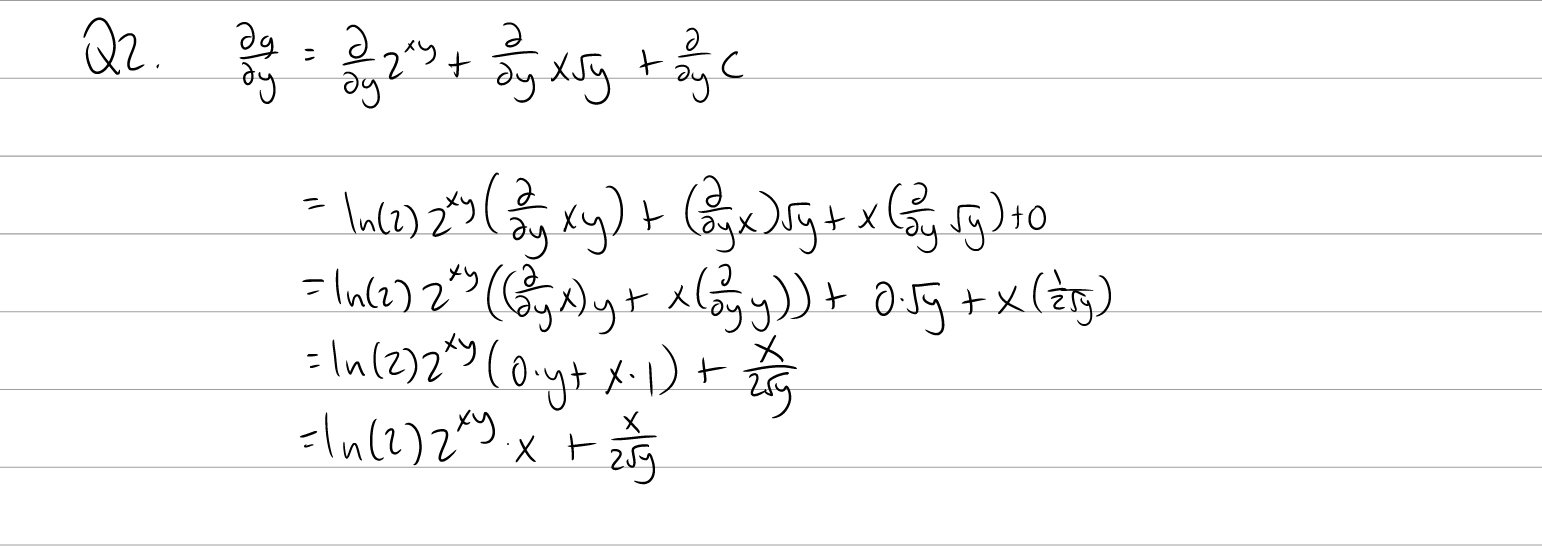 Q2. ∂g/∂y = ∂/∂y 2^xy + ∂/∂y x√y + ∂/∂y C
= ln(2) 2^xy (∂/∂y xy) + (∂/∂y x)√y + x(∂/∂y √y) + 0
= ln(2) 2^xy ((∂/∂y x)y + x(∂/∂y y)) + 0·√y + x(1/2√y)
= ln(2) 2^xy (0·y + x·1) + x/2√y
= ln(2) 2^xy · x + x/2√y